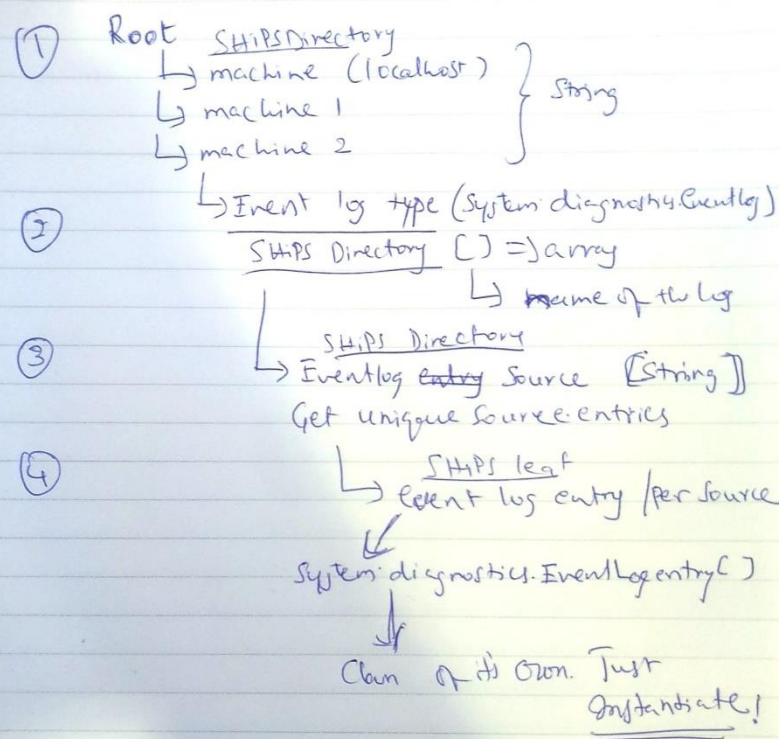 ① Root SHiPSDirectory
↳ machine (localhost)
↳ machine 1 } String
↳ machine 2
② ↳ Event log type (System.diagnostics.Eventlog)
SHiPS Directory [] => array
↳ name of the log
③ SHiPS Directory
↳ Eventlog entry Source [String]]
Get uniqque Source entries
④ SHiPS leaf
↳ event log entry / per source
System.diagnostics.EventLogentry[]
Class of it's own. Just
Instantiate!